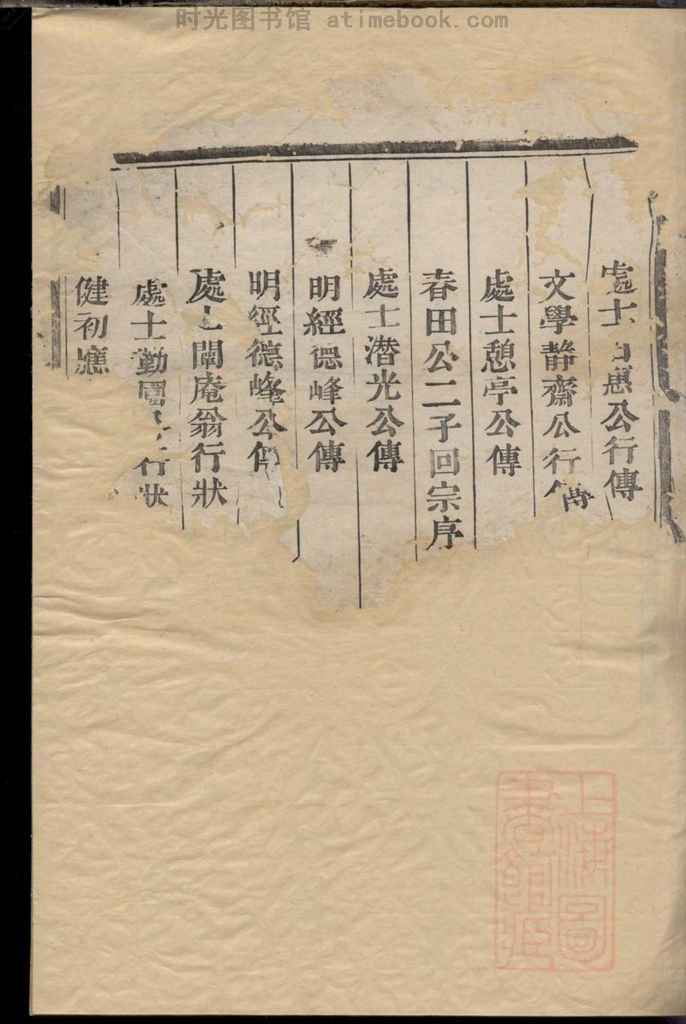 时光图书馆 atimebook.com
處士惠公行傳
文學靜齋公行傳
處士憩亭公傳
春田公二子回宗序
處士潜光公傳
明經德峰公傳
明經德峰公傳
處士闇庵翁行狀
處士勤行狀
健初應
上海圖書館藏